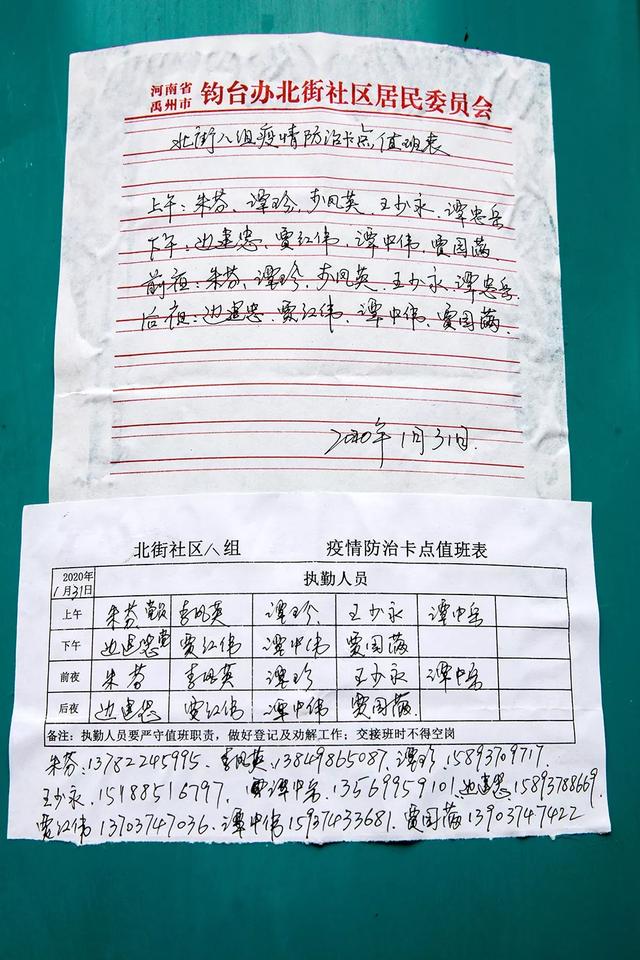 河南省
禹州市 钧台办北街社区居民委员会
北街八组疫情防治卡点值班表
上午:朱芬、谭珍、李凤英、王少永、谭忠岳
下午:边建忠、贾红伟、谭中伟、贾国满
前夜:朱芬、谭珍、李凤英、王少永、谭忠岳
后夜:边建忠、贾红伟、谭中伟、贾国满
2020年1月31日
北街社区八组 疫情防治卡点值班表
2020年 执勤人员
1月31日
上午 朱芬 李凤英 谭珍 王少永 谭中岳
下午 边建忠 贾红伟 谭中伟 贾国满
前夜 朱芬 李凤英 谭珍 王少永 谭中岳
后夜 边建忠 贾红伟 谭中伟 贾国满
备注:执勤人员要严守值班职责,做好登记及劝解工作;交接班时不得空岗
朱芬:13782245995、李凤英:13849865087、谭珍、15893709717
王少永、15188516797、谭中岳、13569959101、边建忠、15893788669
贾红伟13703747036、谭中伟15937433681、贾国满13903747422